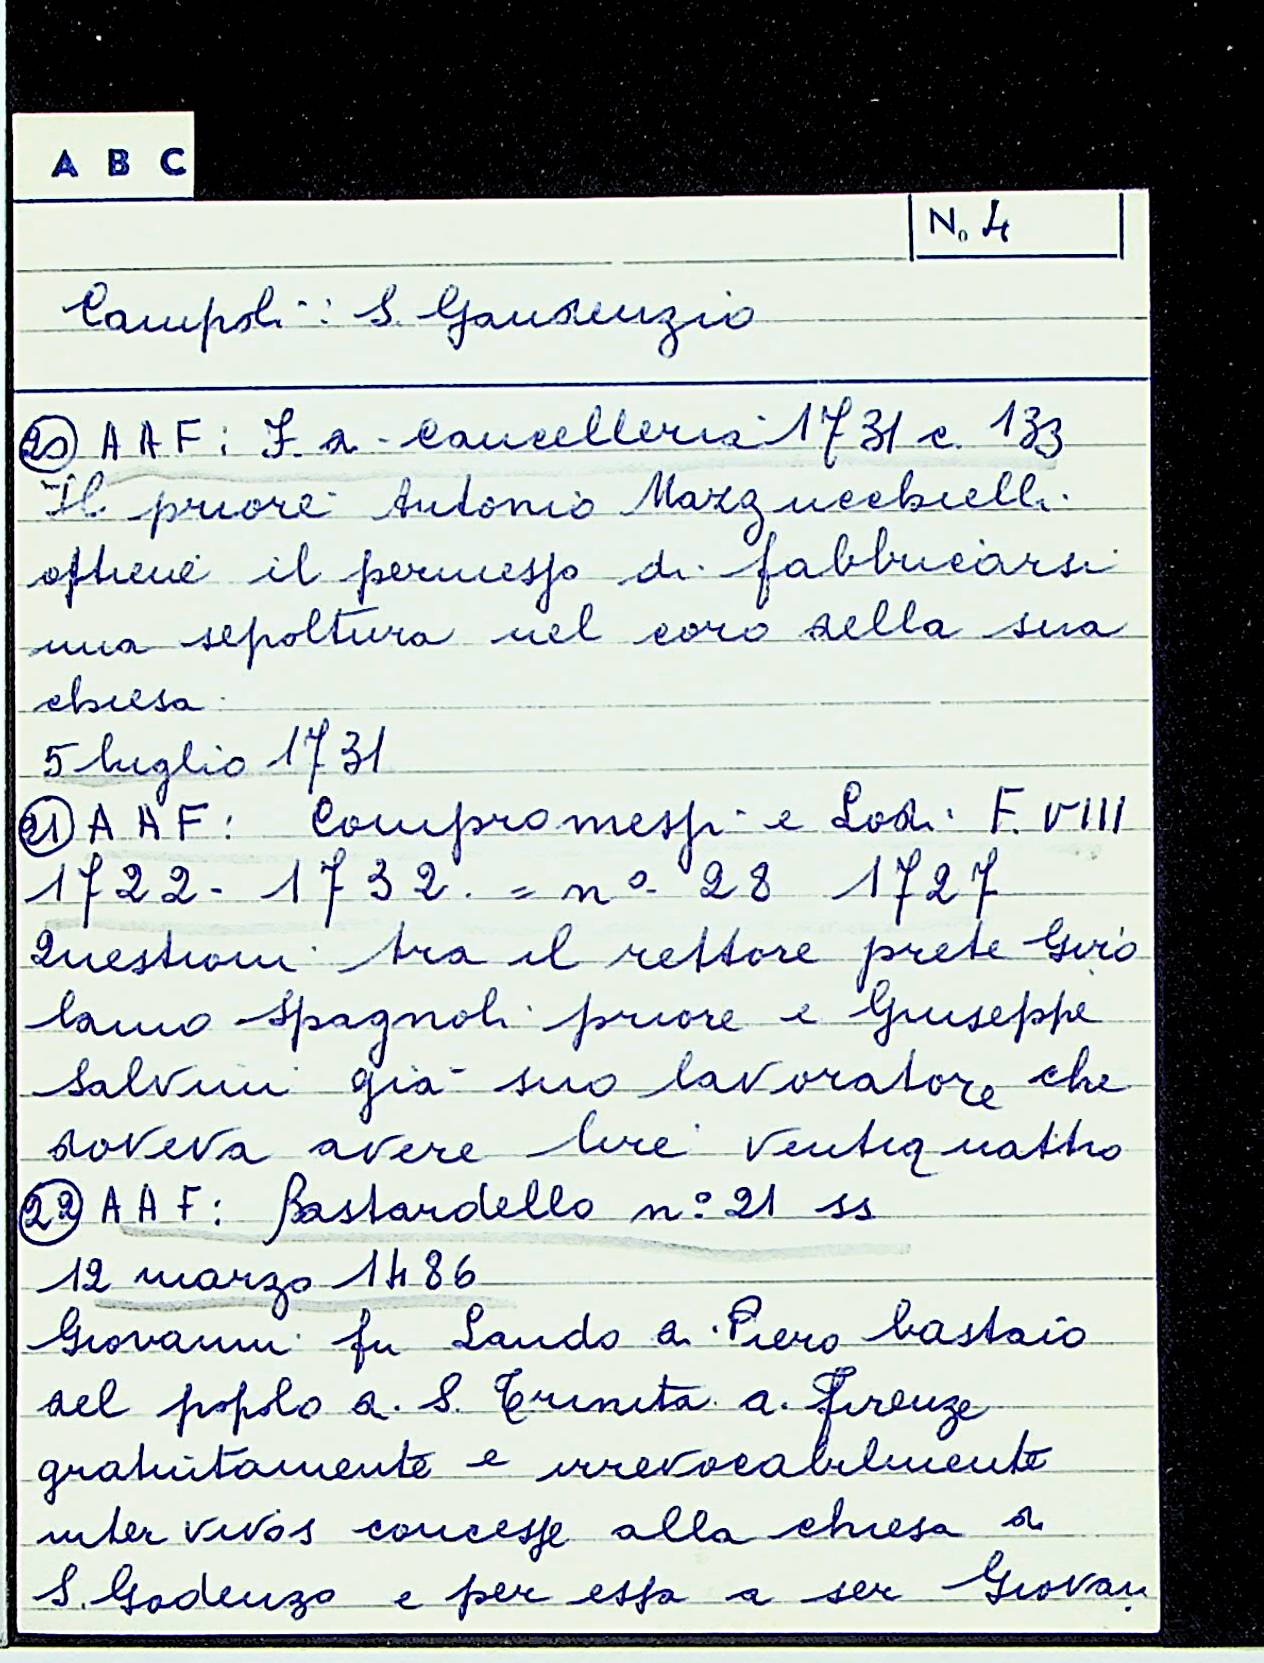 A B C
No 4
Campoli: S. Gaudenzio
20) AAF: F. d. Cancelleria 1731 c. 133
Il priore Antonio Mazzucchielli
ottiene il permesso di fabbricarsi
una sepoltura nel coro della sua
chiesa.
5 luglio 1731
21) AAF: Compromessi e Lodi F. VIII
1722-1732. = n° 28 1727
Questioni tra il rettore prete Giro
lamo Spagnoli priore e Giuseppe
Salvini già suo lavoratore che
doveva avere lire ventiquattro
22) AAF: Bastardello n° 21 ss
12 marzo 1486
Giovanni fu Lando di Piero bastaio
del popolo di S. Trinita di Firenze
gratuitamente e irrevocabilmente
inter vivos concesse alla chiesa di
S. Godenzo e per essa a ser Giovan